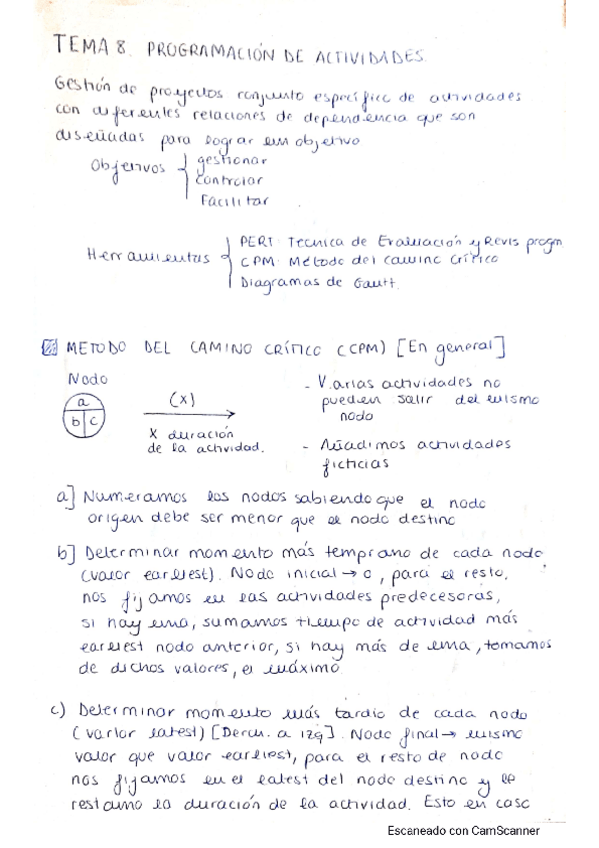 TEMA 8. PROGRAMACIÓN DE ACTIVIDADES.
Gestión de proyectos conjunto específico de actividades
con diferentes relaciones de dependencia que son
diseñadas para lograr un objetivo
Objetivos gestionar
controlar
Facilitar
Herramientas PERT: Tecnica de Evaluación y Revis progm
CPM: Método del camino crítico
Diagramas de Gantt.
METODO DEL CAMINO CRÍTICO (CPM) [En general]
Nodo
a
b c
(X)
X duración
de la actividad.
- Varias actividades no
pueden salir del mismo
nodo
- Añadimos actividades
ficticias
a] Numeramos los nodos sabiendo que el nodo
origen debe ser menor que el nodo destino
b] Determinar momento más temprano de cada nodo
(valor earliest). Nodo inicial → 0, para el resto,
nos fijamos en las actividades predecesoras,
si hay una, sumamos tiempo de actividad más
earliest nodo anterior, si hay más de una, tomamos
de dichos valores, el máximo
c) Determinar momento más tardio de cada nodo
(varlor latest) [Derch. a izq]. Nodo final → mismo
valor que valor earliest, para el resto de nodo
nos fijamos en el latest del nodo destino y le
restamo la duración de la actividad. Esto en caso
Escaneado con CamScanner